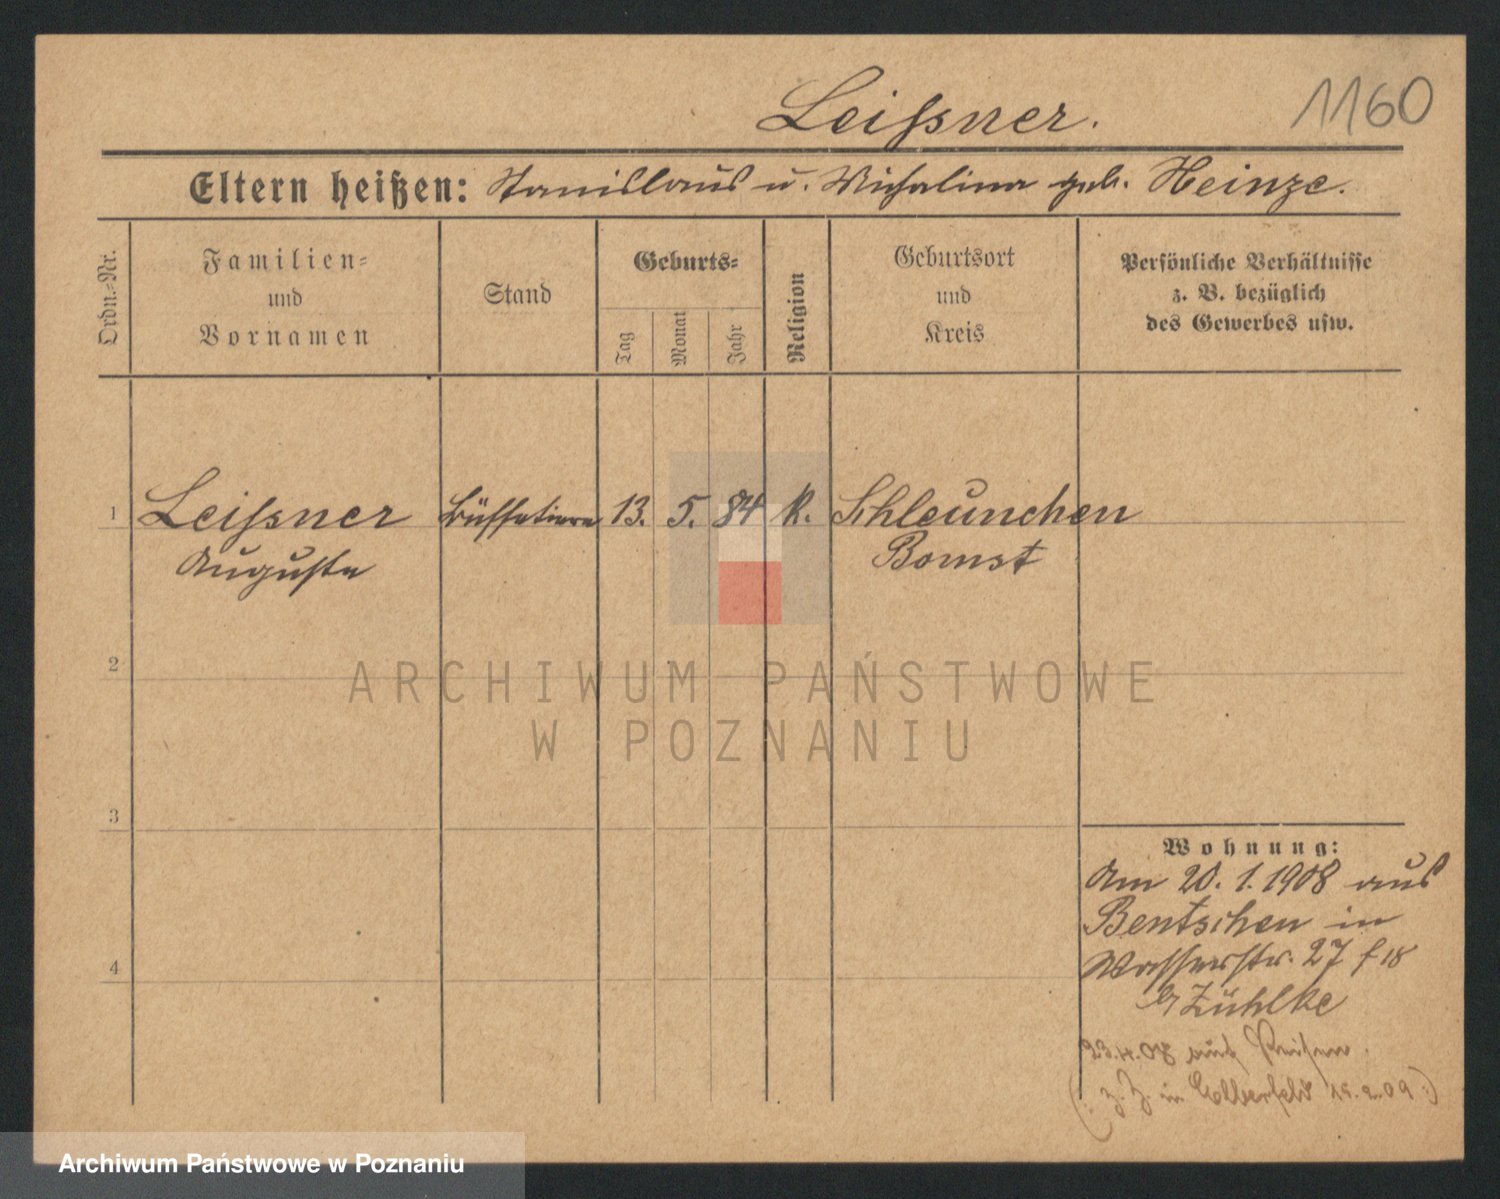 Leißner.
1160
Eltern heißen: Stanislaus u. Michalina geb. Heinze.
Ordn.-Nr.
Familien-
und
Vornamen
Stand
Geburts-
Tag
Monat
Jahr
Religion
Geburtsort
und
Kreis
Persönliche Verhältnisse
z. B. bezüglich
des Gewerbes usw.
1 Leißner Büffetiere 13. 5. 84 K. Schleunchen
Auguste Bomst
2
ARCHIWUM PAŃSTWOWE
W POZNANIU
3
4
Wohnung:
Am 20.1.1908 aus
Bentschen in
Wasserstr. 27
Zühlke
23.4.08 auf Reisen.
(: z. Z. in Elberfeld 2.09 :)
Archiwum Państwowe w Poznaniu